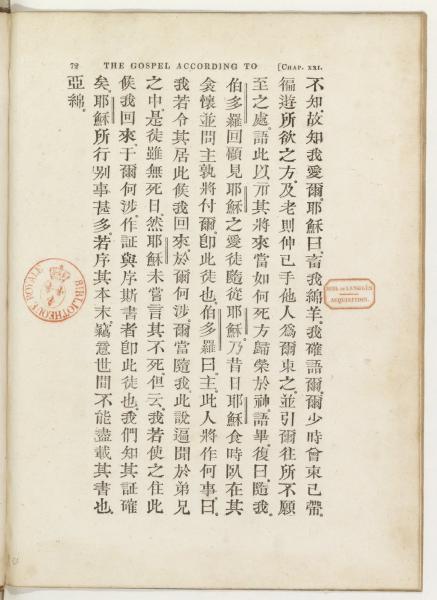 72 THE GOSPEL ACCORDING TO [CHAP. XXI.
不知、故知我愛爾、耶穌曰、畜我綿羊、我確語爾、爾少時曾束己帶、
徧遊所欲之方、及老則伸己手他人爲爾束之、並引爾往所不願
至之處、語此以示其將來當如何死方歸榮於神、語畢復曰、隨我、
伯多羅回顧見耶穌之愛徒隨從、耶穌乃昔日耶穌食時臥在其
懷並問主孰將付爾、卽此徒也、伯多羅曰、主、此人將作何事、曰、
我若令其居此候我回來、於爾何涉、爾當隨我、此說遍聞於弟兄
之中、是徒雖無死日、然耶穌未嘗言其不死、但云、我若使之住此
候我回來、于爾何涉、作証與序斯書者卽此徒也、我們知其証確
矣、耶穌所行别事甚多、若序其本末竊意世間不能盡載其書也、
亞綿。
BIBLIOTHEQUE ROYALE
BIBL. DE LANGLÈS
ACQUISITION.